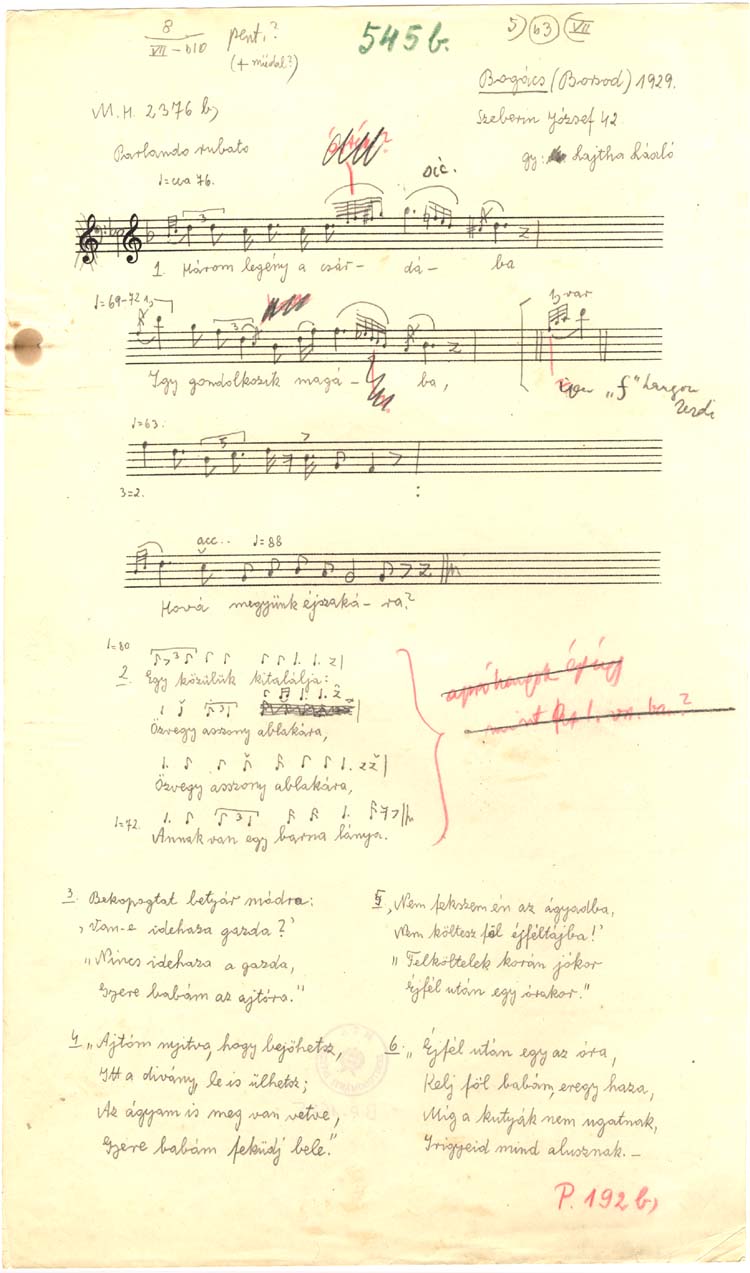 8
VII – b10
pent.?
(+ műdal?)
545b.
5) b3 VII
Bogács (Borsod) 1929.
M.H. 2376 b)
Szeberin József 42
Parlando rubato
gy: Lajtha László
♩=cca 76.
sic.
3
1. Három legény a csár– dá– ba
♩=69–72 1)
3
1) var
Igy gondolkozik magá– ba,
„f" hangon
♩=63.
5
3=2.
acc.. ♩=88
Hová megyünk éjszaká–ra?
♩=80
3
2. Egy közülük kitalálja:
3
Özvegy asszony ablakára,
Özvegy asszony ablakára,
♩=72.
3
Annak van egy barna lánya.
3. Bekopogtat betyár módra:
‚Van-e idehaza gazda?'
„Nincs idehaza a gazda,
Gyere babám az ajtóra."
4. „Ajtóm nyitva, hogy bejöhetsz,
Itt a divány, le is ülhetsz;
Az ágyam is meg van vetve,
Gyere babám feküdj bele."
5. ‚Nem fekszem én az ágyadba,
Nem költesz föl éjféltájba!'
„Felköltelek korán jókor
Éjfél után egy órakor."
6. „Éjfél után egy az óra,
Kelj föl babám, eregy haza,
Mig a kutyák nem ugatnak,
Irigyeid mind alusznak.–
P. 192 b)